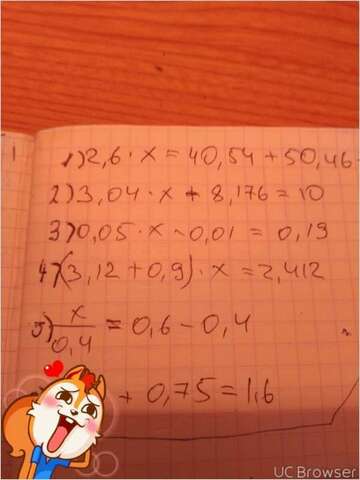 1) 2,6 · x = 40,54 + 50,46
2) 3,04 · x + 8,176 = 10
3) 0,05 · x - 0,01 = 0,19
4) (3,12 + 0,9) · x = 2,412
5) x/0,4 = 0,6 - 0,4
+ 0,75 = 1,6
UC Browser